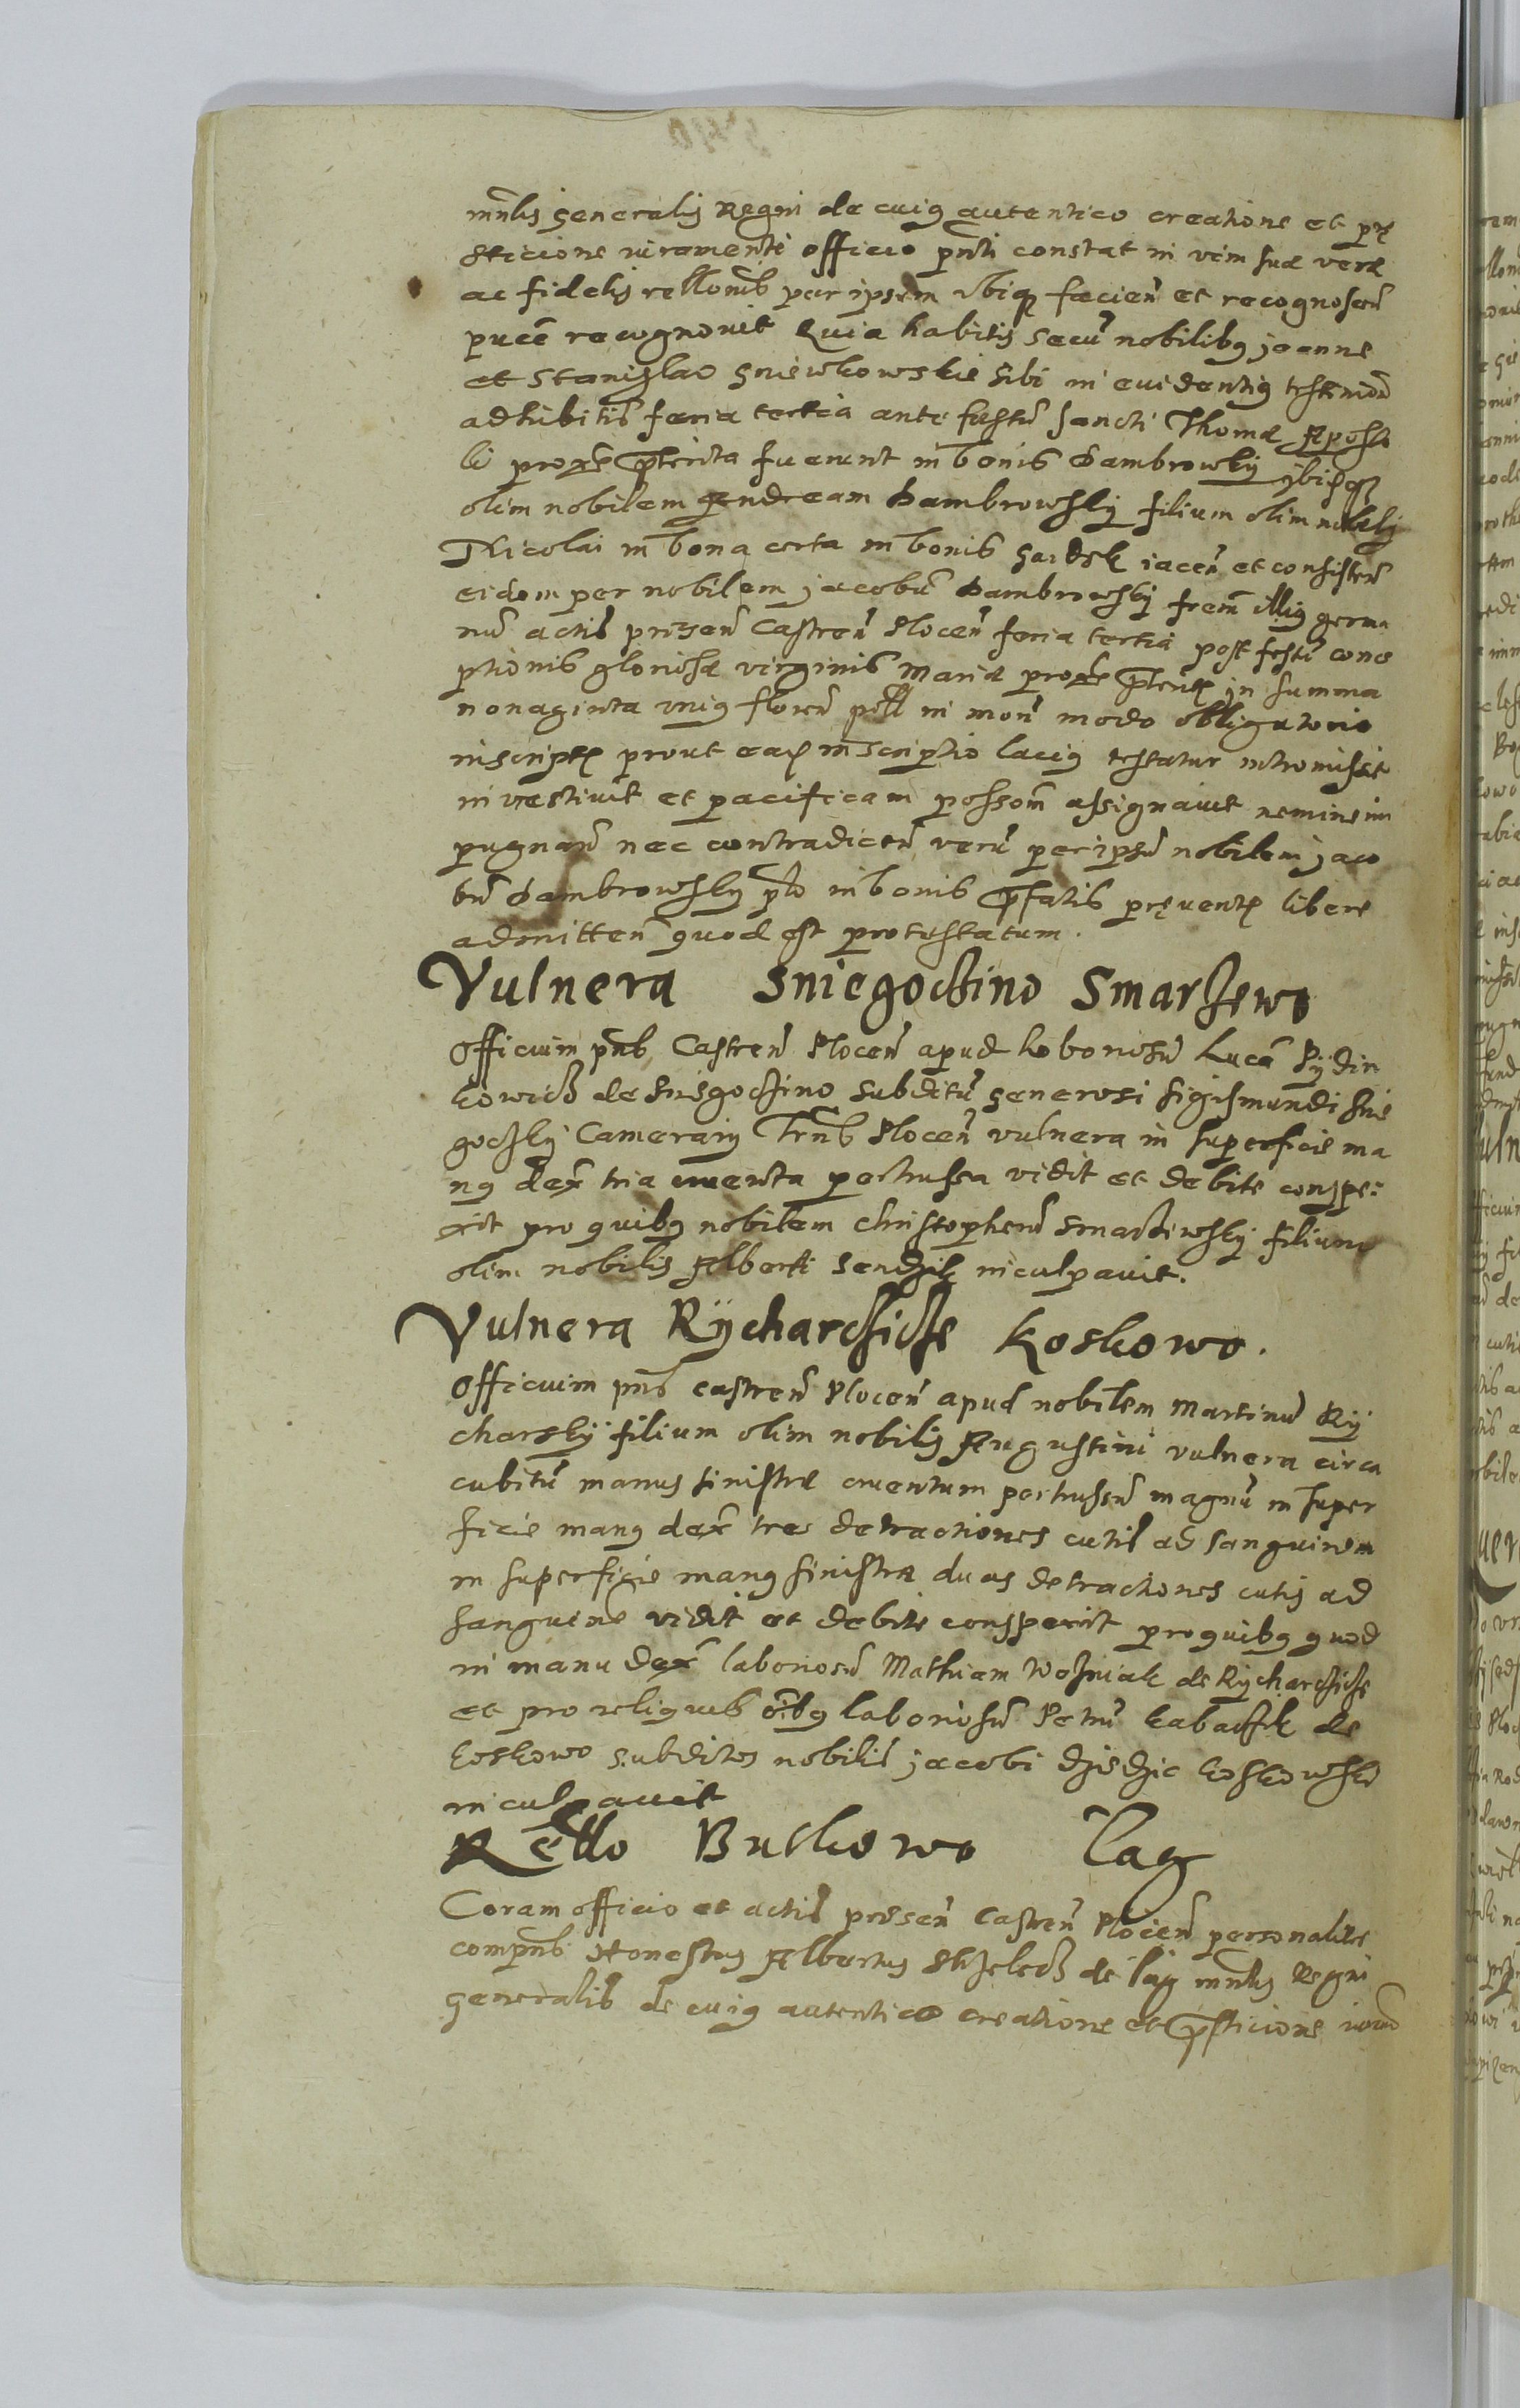 mnlis generalis Regni de cuius autentico creatione et prę
sticione iuramenti officio pnti constat in vim suæ veræ
ac fidelis rellonis per ipsum vbiq facien et recognoscen
recognovit Quia habitis secu nobilibus joanne
et Stanislao Gniewkowskie sibi in evidentius testimon
adhibitis feria tertia ante festu Sancti Thomæ Aposto
li proxe pterita fuerunt in bonis Dambrowky
olim nobilem Andream Dambrowsky filium olim nobilis
Nicolai in bona certa in bonis iacen et consisten
eidem per nobilem jacobu Dambrowsky frem illius germa
nu actis presen Castren Plocen feria tertia post festu conce
ptionis gloriosæ virginis Mariæ proxe pterita in summa
nonaginta vnius floren poll in mon modo obligatorio
inscripta prout eadem inscriptio lacius testatur intromisit
investivit et pacificam possom assignavit nemine im
pugnan nec contradicen veru per ipsu nobilem jaco
bu Dambrowsky in bonis pfatis pręventa libere
admitten quod est protestatum.
Vulnera Sniegoczino Smarzewo
Officium pns Castren Plocen apud laboriosu Luca
kowicz de Sniegoczino subditu generosi Sigismundi Snie
goczky Camerarij Trns Plocen vulnera in superficie ma
nus dex tria cruenta pertussa vidit et debite conspe:
xit pro quibus nobilem Christopheru Smarzewsky filium
olim nobilis Alberti Sendzik inculpavit.
Vulnera Rÿcharczicze Koskowo.
Officium pns castren Plocen apud nobilem Martinu Ry
charsky filium olim nobilis Augustini vulnera circa
cubitu manus sinistræ cruentum pertussu magnu in super
ficie manus dex tres detractiones cutis ad sanguinem
in superficie manus sinistræ duas detractiones cutis ad
sanguine vidit et debite conspexit pro quibus quod
in manu dex laboriosu Mathiam Wozniak de Rycharczicze
et pro reliquis oibus laboriosu Petru de
Koskowo subditos nobilis jacobi Dziedzic Koskowsky
inculpavit
Rello Bulkowo Lag
Coram officio et actis presen Castren Plocen personaliter
compns Honestus Albertus de Lag mnlis Regni
generalis de cuius autentico creatione et psticione